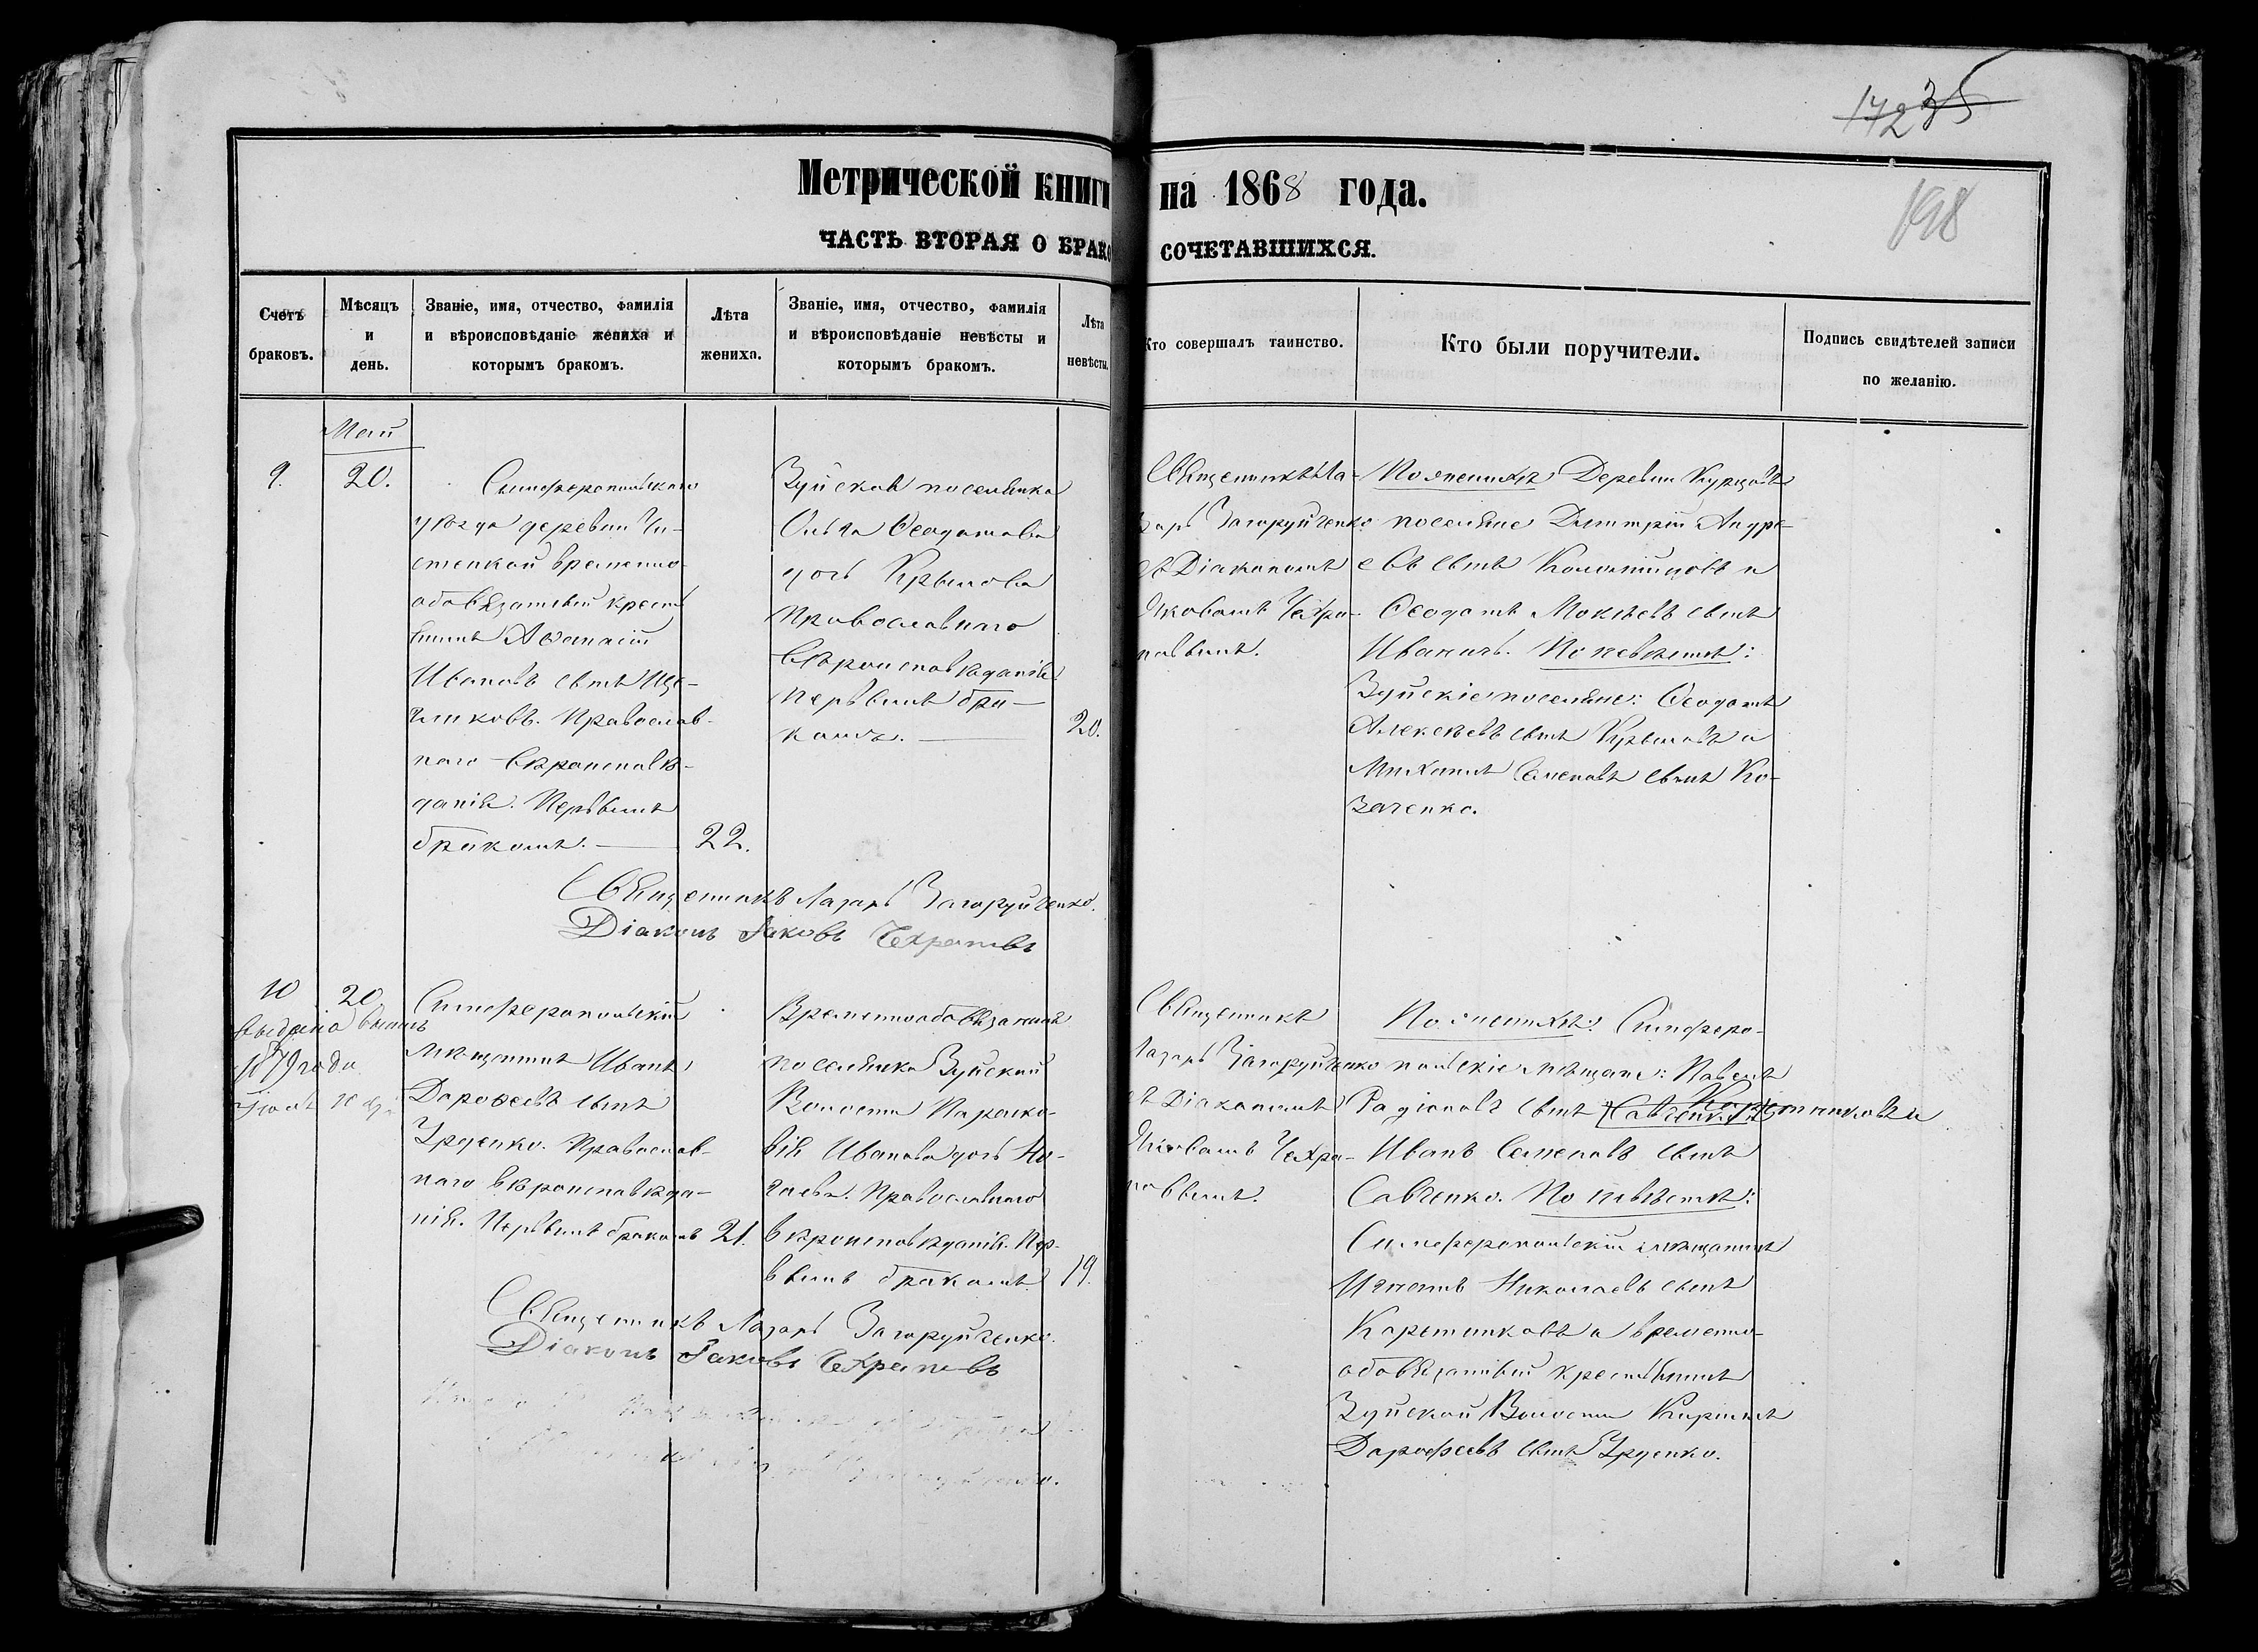 235
172
198
Метрической книги на 1868 года.
ЧАСТЬ ВТОРАЯ О БРАКОСОЧЕТАВШИХСЯ.
Счетъ браковъ.
Мѣсяцъ и день.
Званіе, имя, отчество, фамилія и вѣроисповѣданіе жениха и которымъ бракомъ.
Лѣта жениха.
Званіе, имя, отчество, фамилія и вѣроисповѣданіе невѣсты и которымъ бракомъ.
Лѣта невѣсты.
Кто совершалъ таинство.
Кто были поручители.
Подпись свидѣтелей записи по желанію.
Май
9.
20.
Симферопольскаго
уѣзда деревни Чи-
стенкой временно-
обовязатный кресть
янинъ Аѳанасій
Ивановъ сынъ Ще-
гликовъ. Православ-
наго вѣроисповѣ-
данія. Первымъ
бракомъ.
22.
Зуйская поселянка
Ольга Ѳеодотова
дочь Крылова
Православнаго
вѣроисповѣданія
первымъ бра-
комъ.
20.
Священникъ Ла-
зарь Загоруйченко
съ Діакономъ
Яковомъ Чехра-
новымъ.
По женихѣ Деревни Курцовъ
поселяне Димитрій Андре-
евъ сынъ Коломийцовъ и
Ѳеодотъ Мокѣевъ сынъ
Ивановъ. По невѣстѣ:
Зуйскіе поселяне: Ѳеодотъ
Алексѣевъ сынъ Крыловъ и
Михаилъ Семеновъ сынъ Ко-
заченко.
Священникъ Лазарь Загоруйченко.
Діаконъ Іаковъ Чехрановъ
10
20
1879 года
Симферопольскій
мѣщанинъ Иванъ
Дороѳеевъ сынъ
Урденко. Православ-
наго вѣроисповѣда-
нія. Первымъ бракомъ
21.
Временнообовязанная
поселянка Зуйской
Волости Параске-
вія Иванова дочь Но-
гаева. Православнаго
вѣроисповѣданія. Пер-
вымъ бракомъ.
19.
Священникъ
Лазарь Загоруйченко
съ Діакономъ
Яковомъ Чехра-
новымъ.
По женихѣ: Симферо-
польскіе мѣщане: Павелъ
Радіоновъ сынъ Савченко Коретниковъ и
Иванъ Семеновъ сынъ
Савченко. По невѣстѣ:
Симферопольскій мѣщанинъ
Игнатъ Николаевъ сынъ
Коретниковъ и временно-
обовязатный крестьянинъ
Зуйской Волости Кирилъ
Дорофеевъ сынъ Урденко.
Священникъ Лазарь Загоруйченко.
Діаконъ Іаковъ Чехрановъ